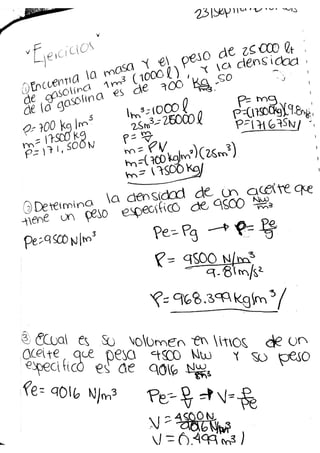 23/sep/
Ejercicios
① Encuentra la masa y el peso de 25000 lt
de gasolina 1m³ (1000 l) y la densidad
de la gasolina es de 700 kg/m³
ρ=700 kg/m³
m=17500 kg
P=171,500N
1m³=1000 l
25m³=25000 l
m=ρV
m=(700kg/m³)(25m³)
m=17500kg/
P=mg
P=171675N/
② Determina la densidad de un aceite que
tiene un peso especifico de 9500 N/m³
Pe=9500N/m³
Pe=Pg → P=Pe/g
P= 9500 N/m³
9.81m/s²
P=968.399kg/m³/
③ ¿Cual es su volumen en litros de un
aceite que pesa 4500 Nw y su peso
especifico es de 9016 Nw/m³
Pe= 9016 N/m³
Pe=P/V ⇒ V=P/Pe
V= 4500N
9016N/m³
V=0.499m³/